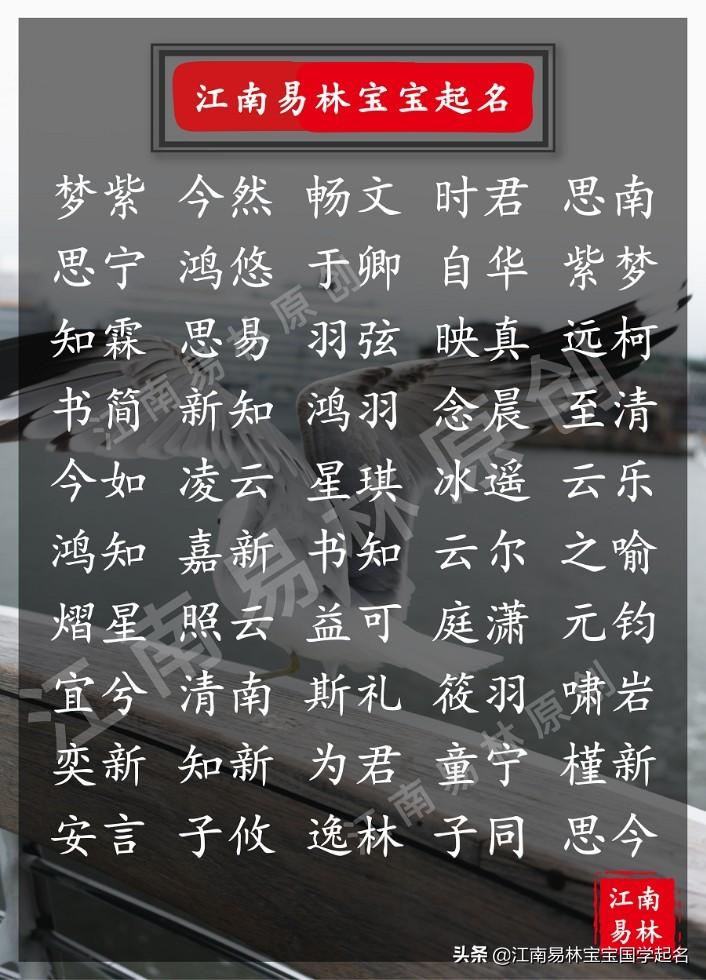 江南易林宝宝起名
梦紫 今然 畅文 时君 思南
思宁 鸿悠 于卿 自华 紫梦
知霖 思易 羽弦 映真 远柯
书简 新知 鸿羽 念晨 至清
今如 凌云 星琪 冰遥 云乐
鸿知 嘉新 书知 云尔 之喻
熠星 照云 益可 庭潇 元钧
宜兮 清南 斯礼 筱羽 啸岩
奕新 知新 为君 童宁 槿新
安言 子攸 逸林 子同 思今
江南易林原创
江南易林原创
江南易林原创
江南
易林
头条 @江南易林宝宝国学起名